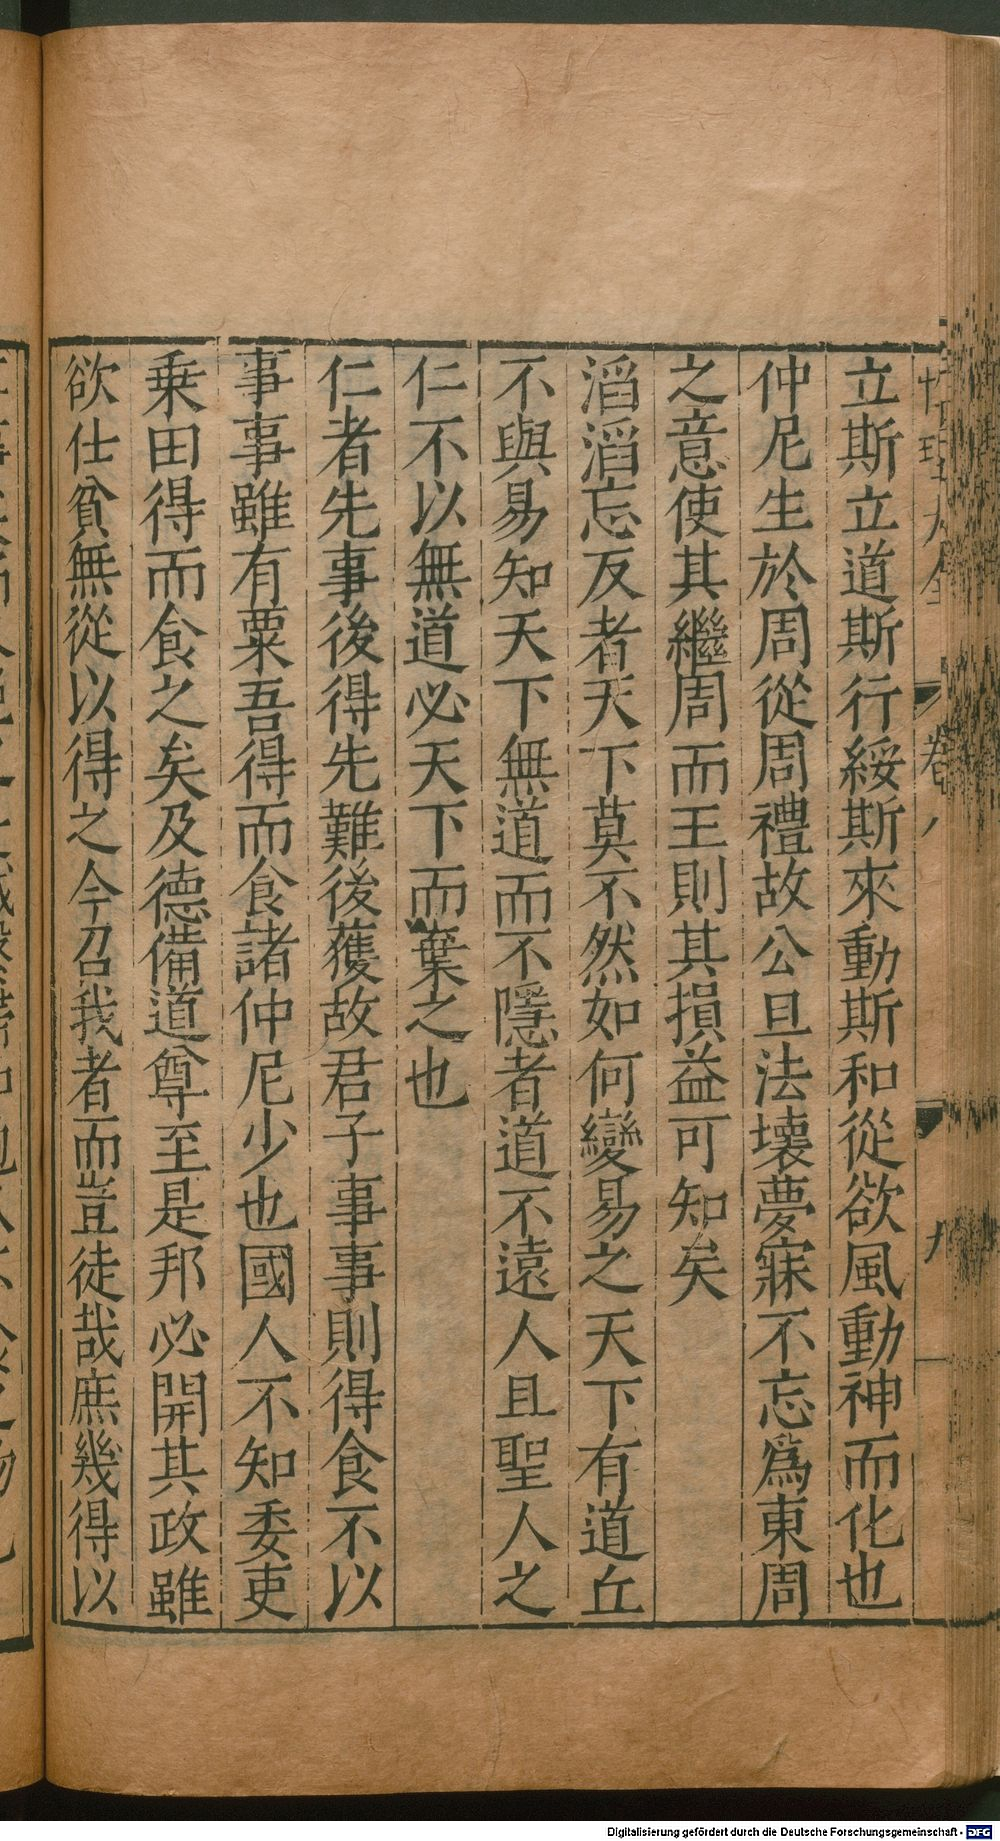 立斯立道斯行綏斯來動斯和從欲風動神而化也
仲尼生於周從周禮故公旦法壞夢寐不忘爲東周
之意使其繼周而王則其損益可知矣
滔滔忘反者天下莫不然如何變易之天下有道丘
不與易知天下無道而不隱者道不遠人且聖人之
仁不以無道必天下而棄之也
仁者先事後得先難後獲故君子事事則得食不以
事事雖有粟吾得而食諸仲尼少也國人不知委吏
乗田得而食之矣及德備道尊至是邦必聞其政雖
欲仕貧無從以得之今召我者而豈徒哉庶幾得以
Digitalisierung gefördert durch die Deutsche Forschungsgemeinschaft - DFG